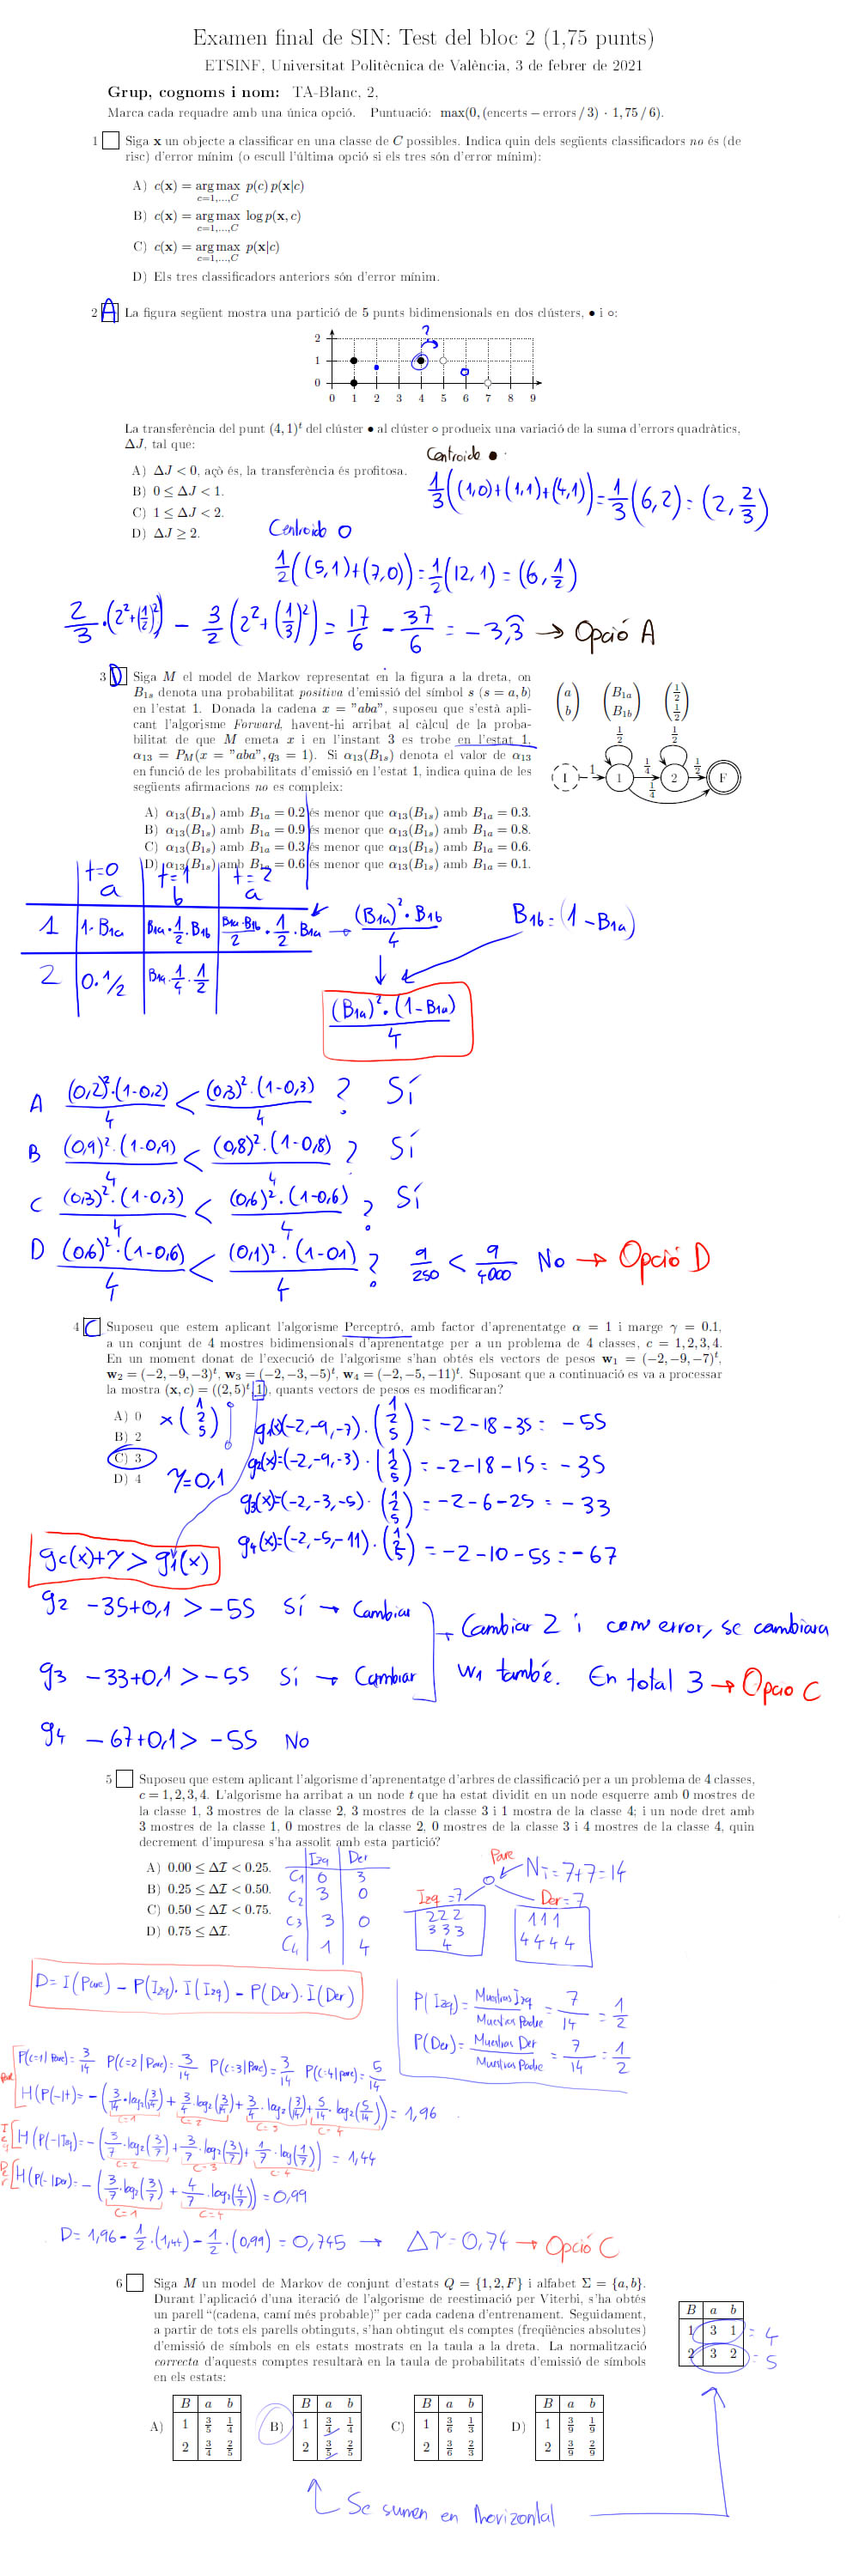 Examen final de SIN: Test del bloc 2 (1,75 punts)
ETSINF, Universitat Politècnica de València, 3 de febrer de 2021
Grup, cognoms i nom: TA-Blanc, 2,
Marca cada requadre amb una única opció. Puntuació: max(0, (encerts − errors / 3) · 1,75 / 6).
1 Siga x un objecte a classificar en una classe de C possibles. Indica quin dels següents classificadors no és (de
risc) d'error mínim (o escull l'última opció si els tres són d'error mínim):
A) c(x) = arg max p(c) p(x|c)
c=1,...,C
B) c(x) = arg max log p(x, c)
c=1,...,C
C) c(x) = arg max p(x|c)
c=1,...,C
D) Els tres classificadors anteriors són d'error mínim.
2 A La figura següent mostra una partició de 5 punts bidimensionals en dos clústers, • i ○:
?
2
1
0
0 1 2 3 4 5 6 7 8 9
La transferència del punt (4, 1)^t del clúster • al clúster ○ produeix una variació de la suma d'errors quadràtics,
ΔJ, tal que:
Centroide •
A) ΔJ < 0, açò és, la transferència és profitosa.
B) 0 ≤ ΔJ < 1.
1/3((1,0)+(1,1)+(4,1)) = 1/3(6,2) = (2, 2/3)
C) 1 ≤ ΔJ < 2.
D) ΔJ ≥ 2.
Centroide O
1/2((5,1)+(7,0)) = 1/2(12,1) = (6, 1/2)
2/3·(2²+(1/2)²) − 3/2(2²+(1/3)²) = 17/6 − 37/6 = −3,3 → Opció A
3 D Siga M el model de Markov representat en la figura a la dreta, on
B1s denota una probabilitat positiva d'emissió del símbol s (s = a, b)
en l'estat 1. Donada la cadena x = "aba", suposeu que s'està apli-
cant l'algorisme Forward, havent-hi arribat al càlcul de la proba-
bilitat de que M emeta x i en l'instant 3 es trobe en l'estat 1,
α13 = PM(x = "aba", q3 = 1). Si α13(B1s) denota el valor de α13
en funció de les probabilitats d'emissió en l'estat 1, indica quina de les
següents afirmacions no es compleix:
(a b) (B1a B1b) (1/2 1/2)
1/2 1/2
I 1 1 1/4 2 1/2 F
1/4
A) α13(B1s) amb B1a = 0.2 és menor que α13(B1s) amb B1a = 0.3.
B) α13(B1s) amb B1a = 0.9 és menor que α13(B1s) amb B1a = 0.8.
C) α13(B1s) amb B1a = 0.3 és menor que α13(B1s) amb B1a = 0.6.
D) α13(B1s) amb B1a = 0.6 és menor que α13(B1s) amb B1a = 0.1.
t=0 t=1 t=2
a b a
1 1·B1a B1a·1/2·B1b B1a·B1b/2·1/2·B1a → (B1a)²·B1b/4 B1b = (1−B1a)
2 0·1/2 B1a·1/4·1/2
(B1a)²·(1−B1a)/4
A (0,2)²·(1-0,2)/4 < (0,3)²·(1-0,3)/4 ? Sí
B (0,9)²·(1-0,9)/4 < (0,8)²·(1-0,8)/4 ? Sí
C (0,3)²·(1-0,3)/4 < (0,6)²·(1-0,6)/4 ? Sí
D (0,6)²·(1-0,6)/4 < (0,1)²·(1-0,1)/4 ? 9/250 < 9/4000 No → Opció D
4 C Suposeu que estem aplicant l'algorisme Perceptró, amb factor d'aprenentatge α = 1 i marge γ = 0.1,
a un conjunt de 4 mostres bidimensionals d'aprenentatge per a un problema de 4 classes, c = 1, 2, 3, 4.
En un moment donat de l'execució de l'algorisme s'han obtés els vectors de pesos w1 = (−2, −9, −7)^t,
w2 = (−2, −9, −3)^t, w3 = (−2, −3, −5)^t, w4 = (−2, −5, −11)^t. Suposant que a continuació es va a processar
la mostra (x, c) = ((2, 5)^t, 1), quants vectors de pesos es modificaran?
A) 0
B) 2
C) 3
D) 4
x (1 2 5)
γ=0,1
g1(x)(-2,-9,-7)·(1 2 5) = -2-18-35 = -55
g2(x)=(-2,-9,-3)·(1 2 5) = -2-18-15 = -35
g3(x)=(-2,-3,-5)·(1 2 5) = -2-6-25 = -33
g4(x)=(-2,-5,-11)·(1 2 5) = -2-10-55 = -67
gc(x)+γ > g1(x)
g2 -35+0,1 > -55 Sí → Cambiar
→ Cambiar 2 i com error, se cambiara
g3 -33+0,1 > -55 Sí → Cambiar
w1 també. En total 3 → Opcio C
g4 -67+0,1 > -55 No
5 Suposeu que estem aplicant l'algorisme d'aprenentatge d'arbres de classificació per a un problema de 4 classes,
c = 1, 2, 3, 4. L'algorisme ha arribat a un node t que ha estat dividit en un node esquerre amb 0 mostres de
la classe 1, 3 mostres de la classe 2, 3 mostres de la classe 3 i 1 mostra de la classe 4; i un node dret amb
3 mostres de la classe 1, 0 mostres de la classe 2, 0 mostres de la classe 3 i 4 mostres de la classe 4, quin
decrement d'impuresa s'ha assolit amb esta partició?
A) 0.00 ≤ ΔI < 0.25.
B) 0.25 ≤ ΔI < 0.50.
C) 0.50 ≤ ΔI < 0.75.
D) 0.75 ≤ ΔI.
Izq Der
C1 0 3
C2 3 0
C3 3 0
C4 1 4
Pare
Ni = 7+7 = 14
Izq = 7 Der = 7
2 2 2
3 3 3
4
1 1 1
4 4 4 4
D = I(Pare) − P(Izq)·I(Izq) − P(Der)·I(Der)
P(Izq) = Muestras Izq/Muestras Padre = 7/14 = 1/2
P(Der) = Muestras Der/Muestras Padre = 7/14 = 1/2
Pare
P(c=1|Pare) = 3/14 P(c=2|Pare) = 3/14 P(c=3|Pare) = 3/14 P(c=4|pare) = 5/14
H(P(-|t) = −(3/14·log2(3/14) + 3/4·log2(3/14) + 3/4·log2(3/14) + 5/14·log2(5/14)) = 1,96
c=1 c=2 c=3 c=4
Izq
H(P(-|Izq) = −(3/7·log2(3/7) + 3/7·log2(3/7) + 1/7·log(1/7)) = 1,44
c=2 c=3 c=4
Der
H(P(-|Der) = −(3/7·log2(3/7) + 4/7·log2(4/7)) = 0,99
c=1 c=4
D = 1,96 − 1/2·(1,44) − 1/2·(0,99) = 0,745 → ΔI = 0,74 → Opció C
6 Siga M un model de Markov de conjunt d'estats Q = {1, 2, F} i alfabet Σ = {a, b}.
Durant l'aplicació d'una iteració de l'algorisme de reestimació per Viterbi, s'ha obtés
un parell "(cadena, camí més probable)" per cada cadena d'entrenament. Seguidament,
a partir de tots els parells obtinguts, s'han obtingut els comptes (freqüències absolutes)
d'emissió de símbols en els estats mostrats en la taula a la dreta. La normalització
correcta d'aquests comptes resultarà en la taula de probabilitats d'emissió de símbols
en els estats:
B a b
1 3 1 = 4
2 3 2 = 5
A) B a b
1 3/5 1/4
2 3/4 2/5
B) B a b
1 3/4 1/4
2 3/5 2/5
C) B a b
1 3/6 1/3
2 3/6 2/3
D) B a b
1 3/9 1/9
2 3/9 2/9
Se sumen en horizontal